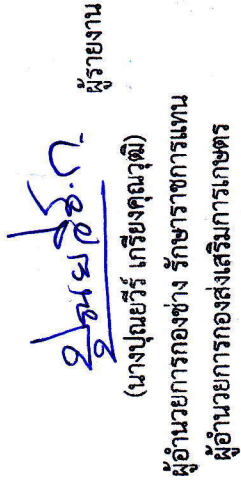 ปุณยวีร์ ก. ผู้รายงาน
(นางปุณยวีร์ เกรียงคุณวุฒิ)
ผู้อำนวยการกองช่าง รักษาราชการแทน
ผู้อำนวยการกองส่งเสริมการเกษตร